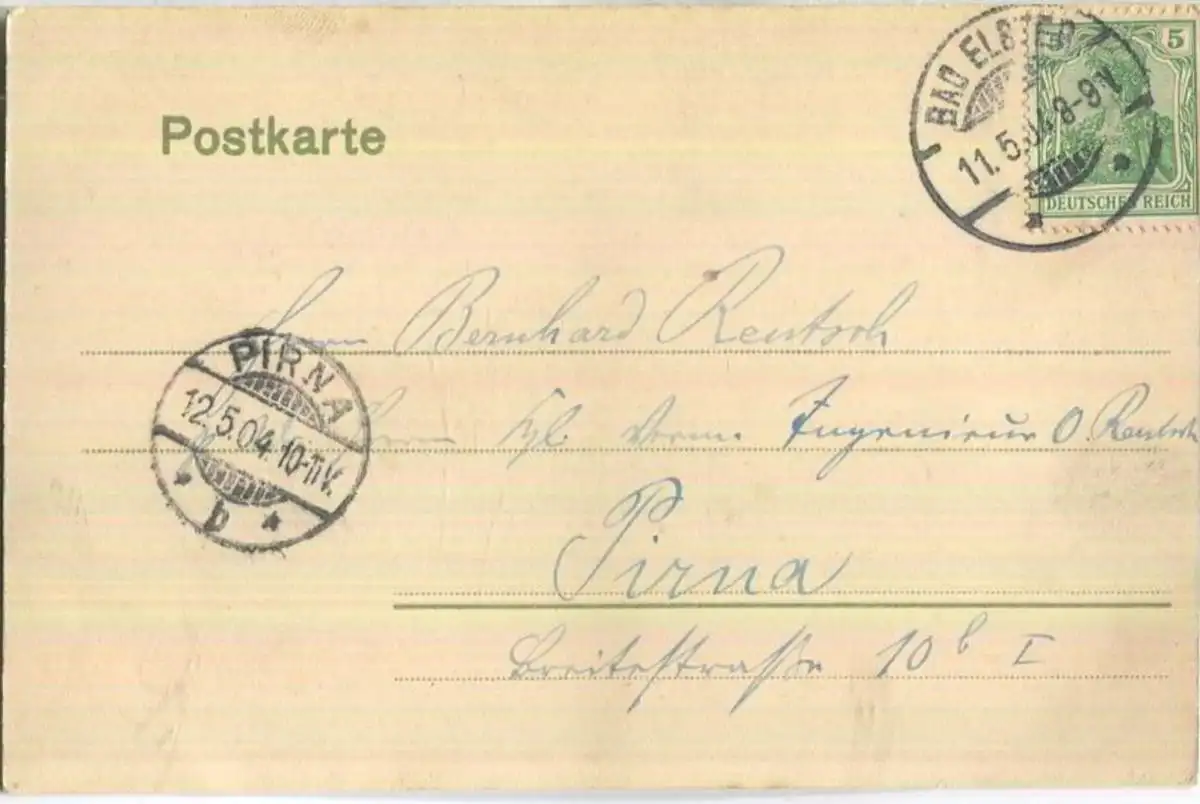 Postkarte
BAD ELSTER
11.5.04.8-9V.
5
DEUTSCHES REICH
Herrn Bernhard Rentsch
Kgl. Verm. Ingenieur O. Rentsch
PIRNA
12.5.04.10-11V.
b
Pirna
Breitestraße 10b I